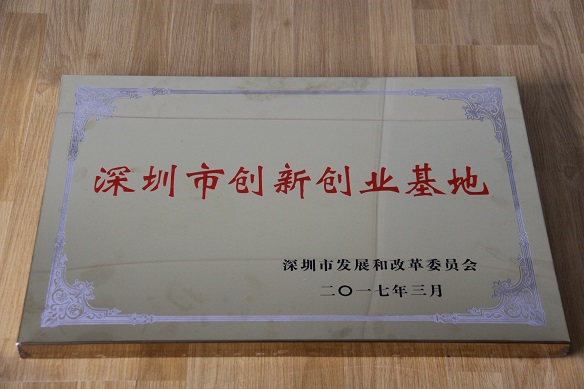 深圳市创新创业基地
深圳市发展和改革委员会
二〇一七年三月